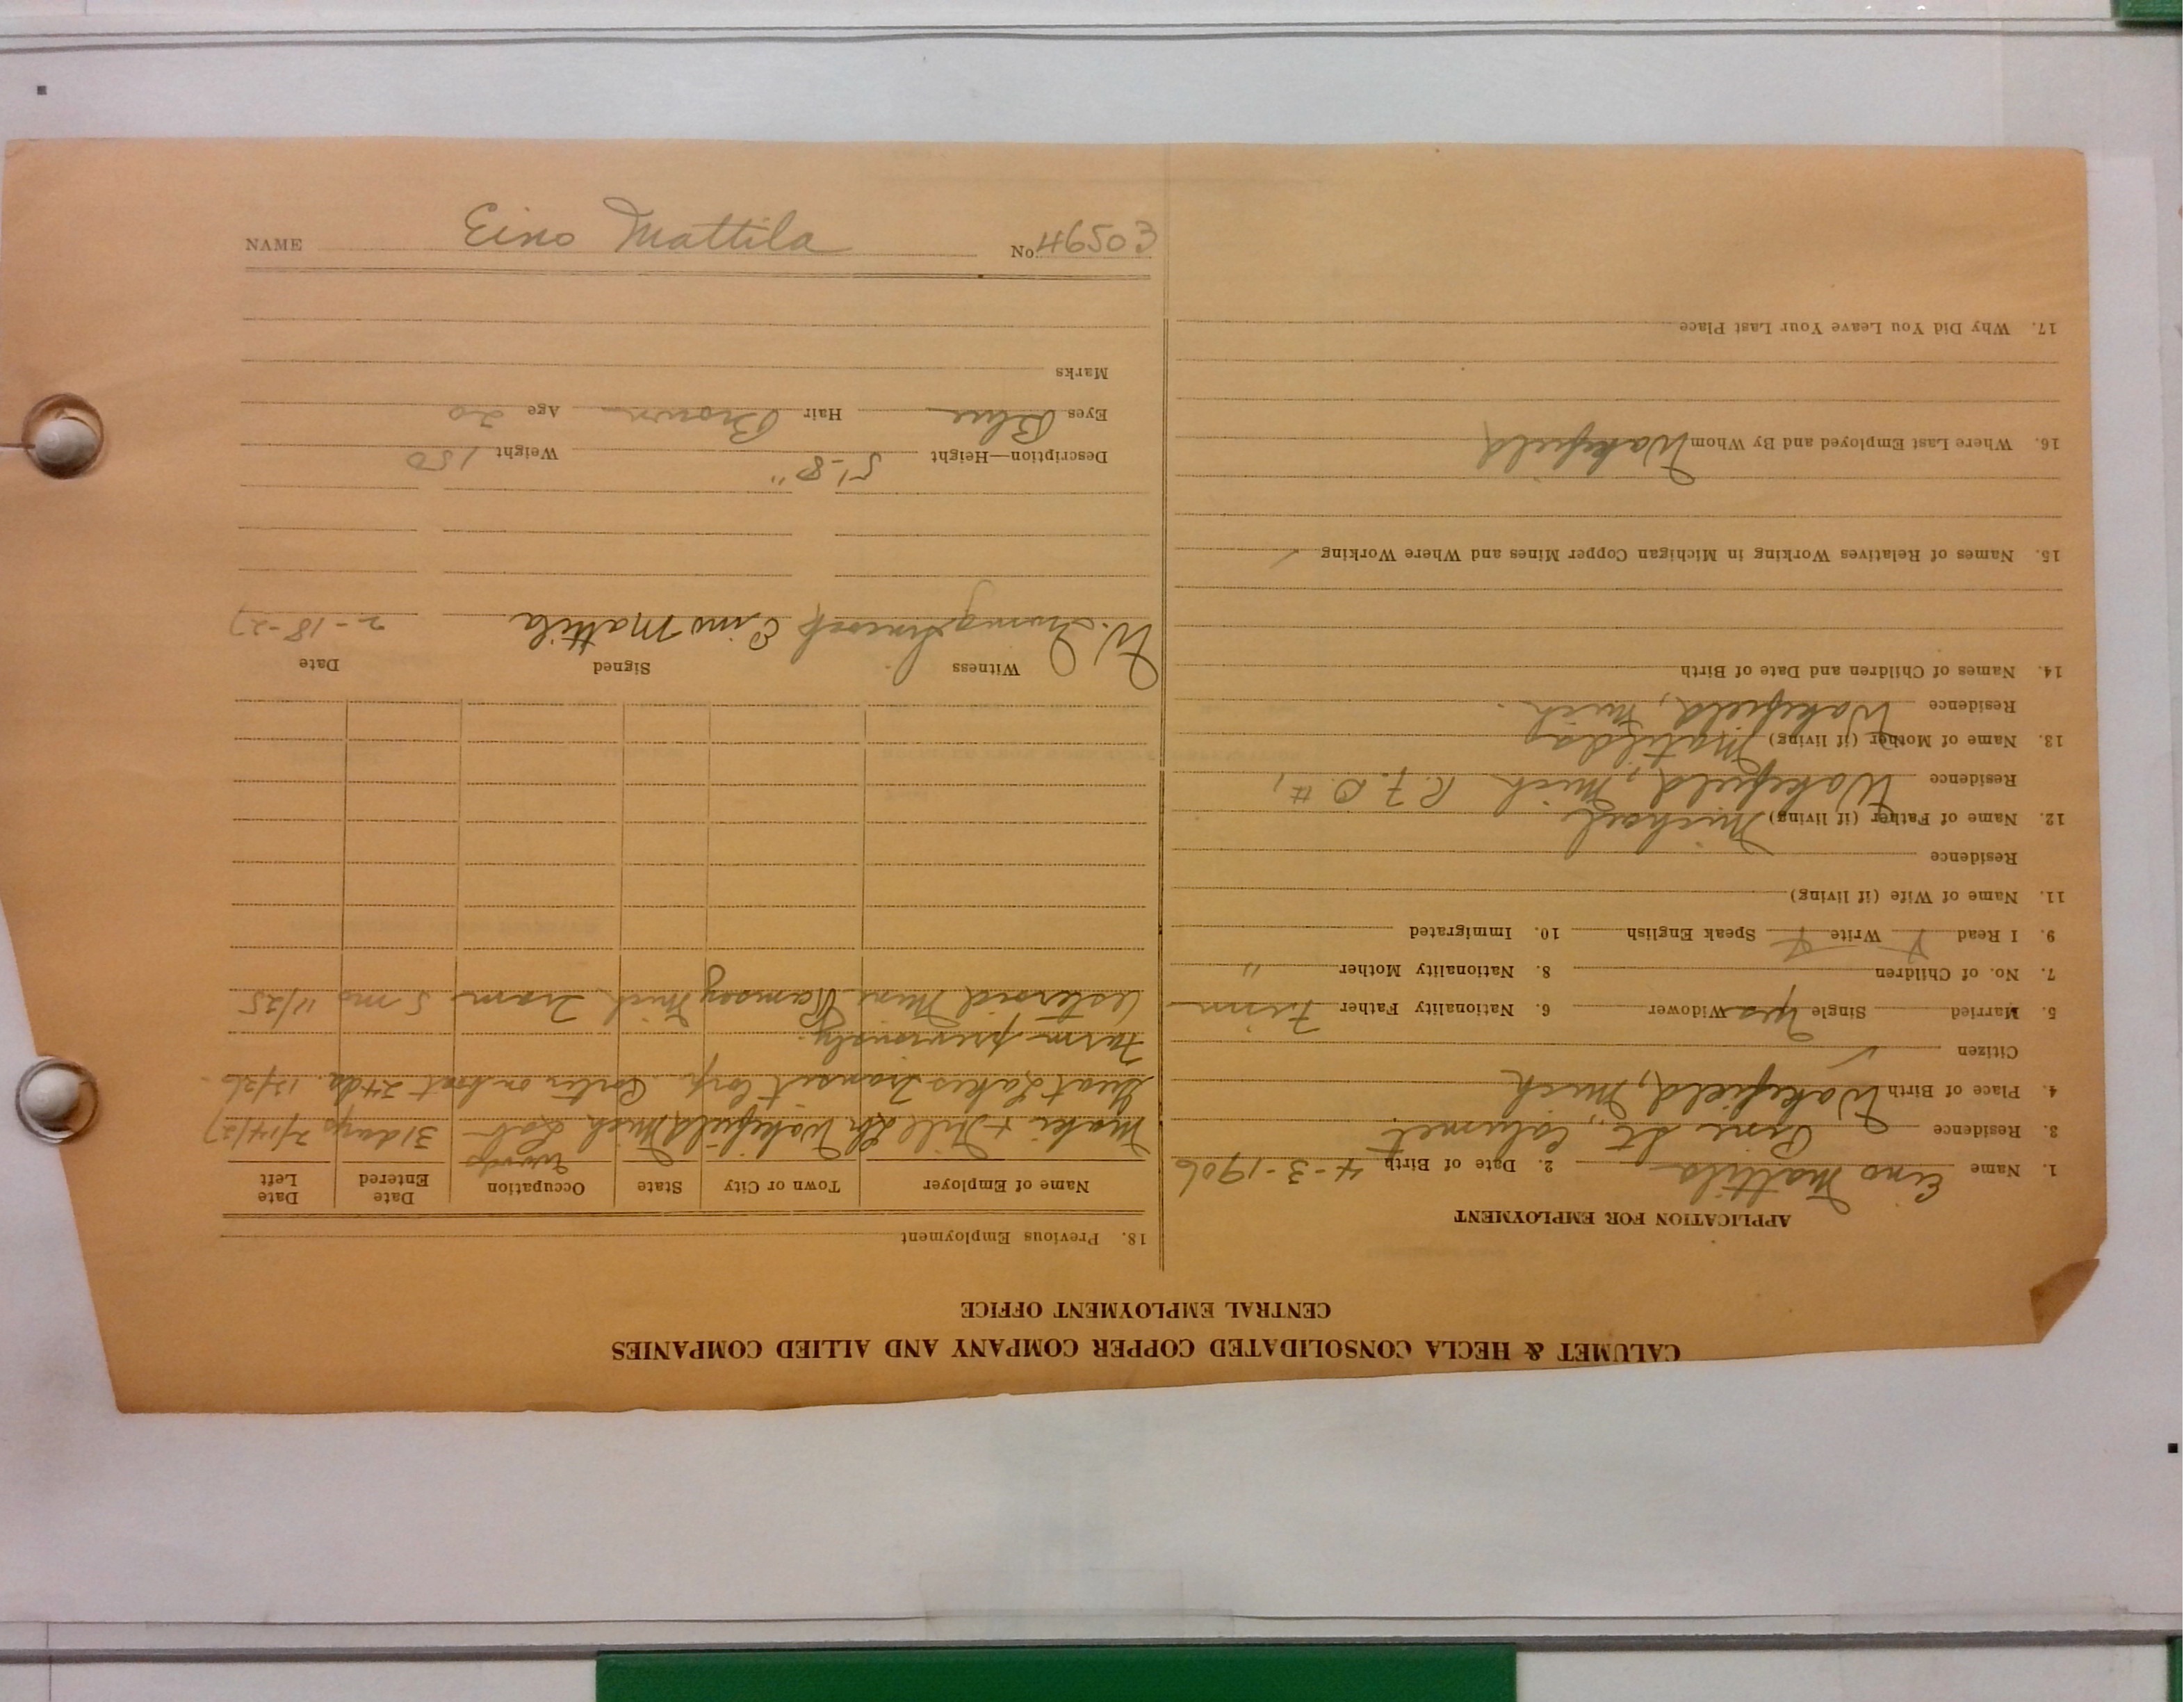 NAME Eino Mattila No. 46503
CALUMET & HECLA CONSOLIDATED COPPER COMPANY AND ALLIED COMPANIES
CENTRAL EMPLOYMENT OFFICE
APPLICATION FOR EMPLOYMENT
1. Name Eino Mattila 2. Date of Birth 4-3-1906
3. Residence Pine St., Calumet
4. Place of Birth Wakefield, Mich
Citizen ✓
5. Married Single yes Widower 6. Nationality Father Finn
7. No. of Children 8. Nationality Mother "
9. I Read Write Speak English 10. Immigrated
11. Name of Wife (if living)
Residence
12. Name of Father (if living) Michael
Residence Wakefield, Mich R.F.D. #1
13. Name of Mother (if living) Matilda
Residence Wakefield, Mich.
14. Names of Children and Date of Birth
15. Names of Relatives Working in Michigan Copper Mines and Where Working ✓
16. Where Last Employed and By Whom Wakefield
17. Why Did You Leave Your Last Place
18. Previous Employment
Name of Employer Town or City State Occupation Date Entered Date Left
Woods
Maki + Wakefield Mich Lab 31 days 2/14/27
Great Lakes Transit Corp. Porter on boat 24 da. 12/26
Farm previously.
Mine Ramsay Mich Tram 5 mo 11/25
Witness Signed Date
W. Eino Mattila 2-18-27
Description—Height 5'-8" Weight 150
Eyes Blue Hair Brown Age 20
Marks